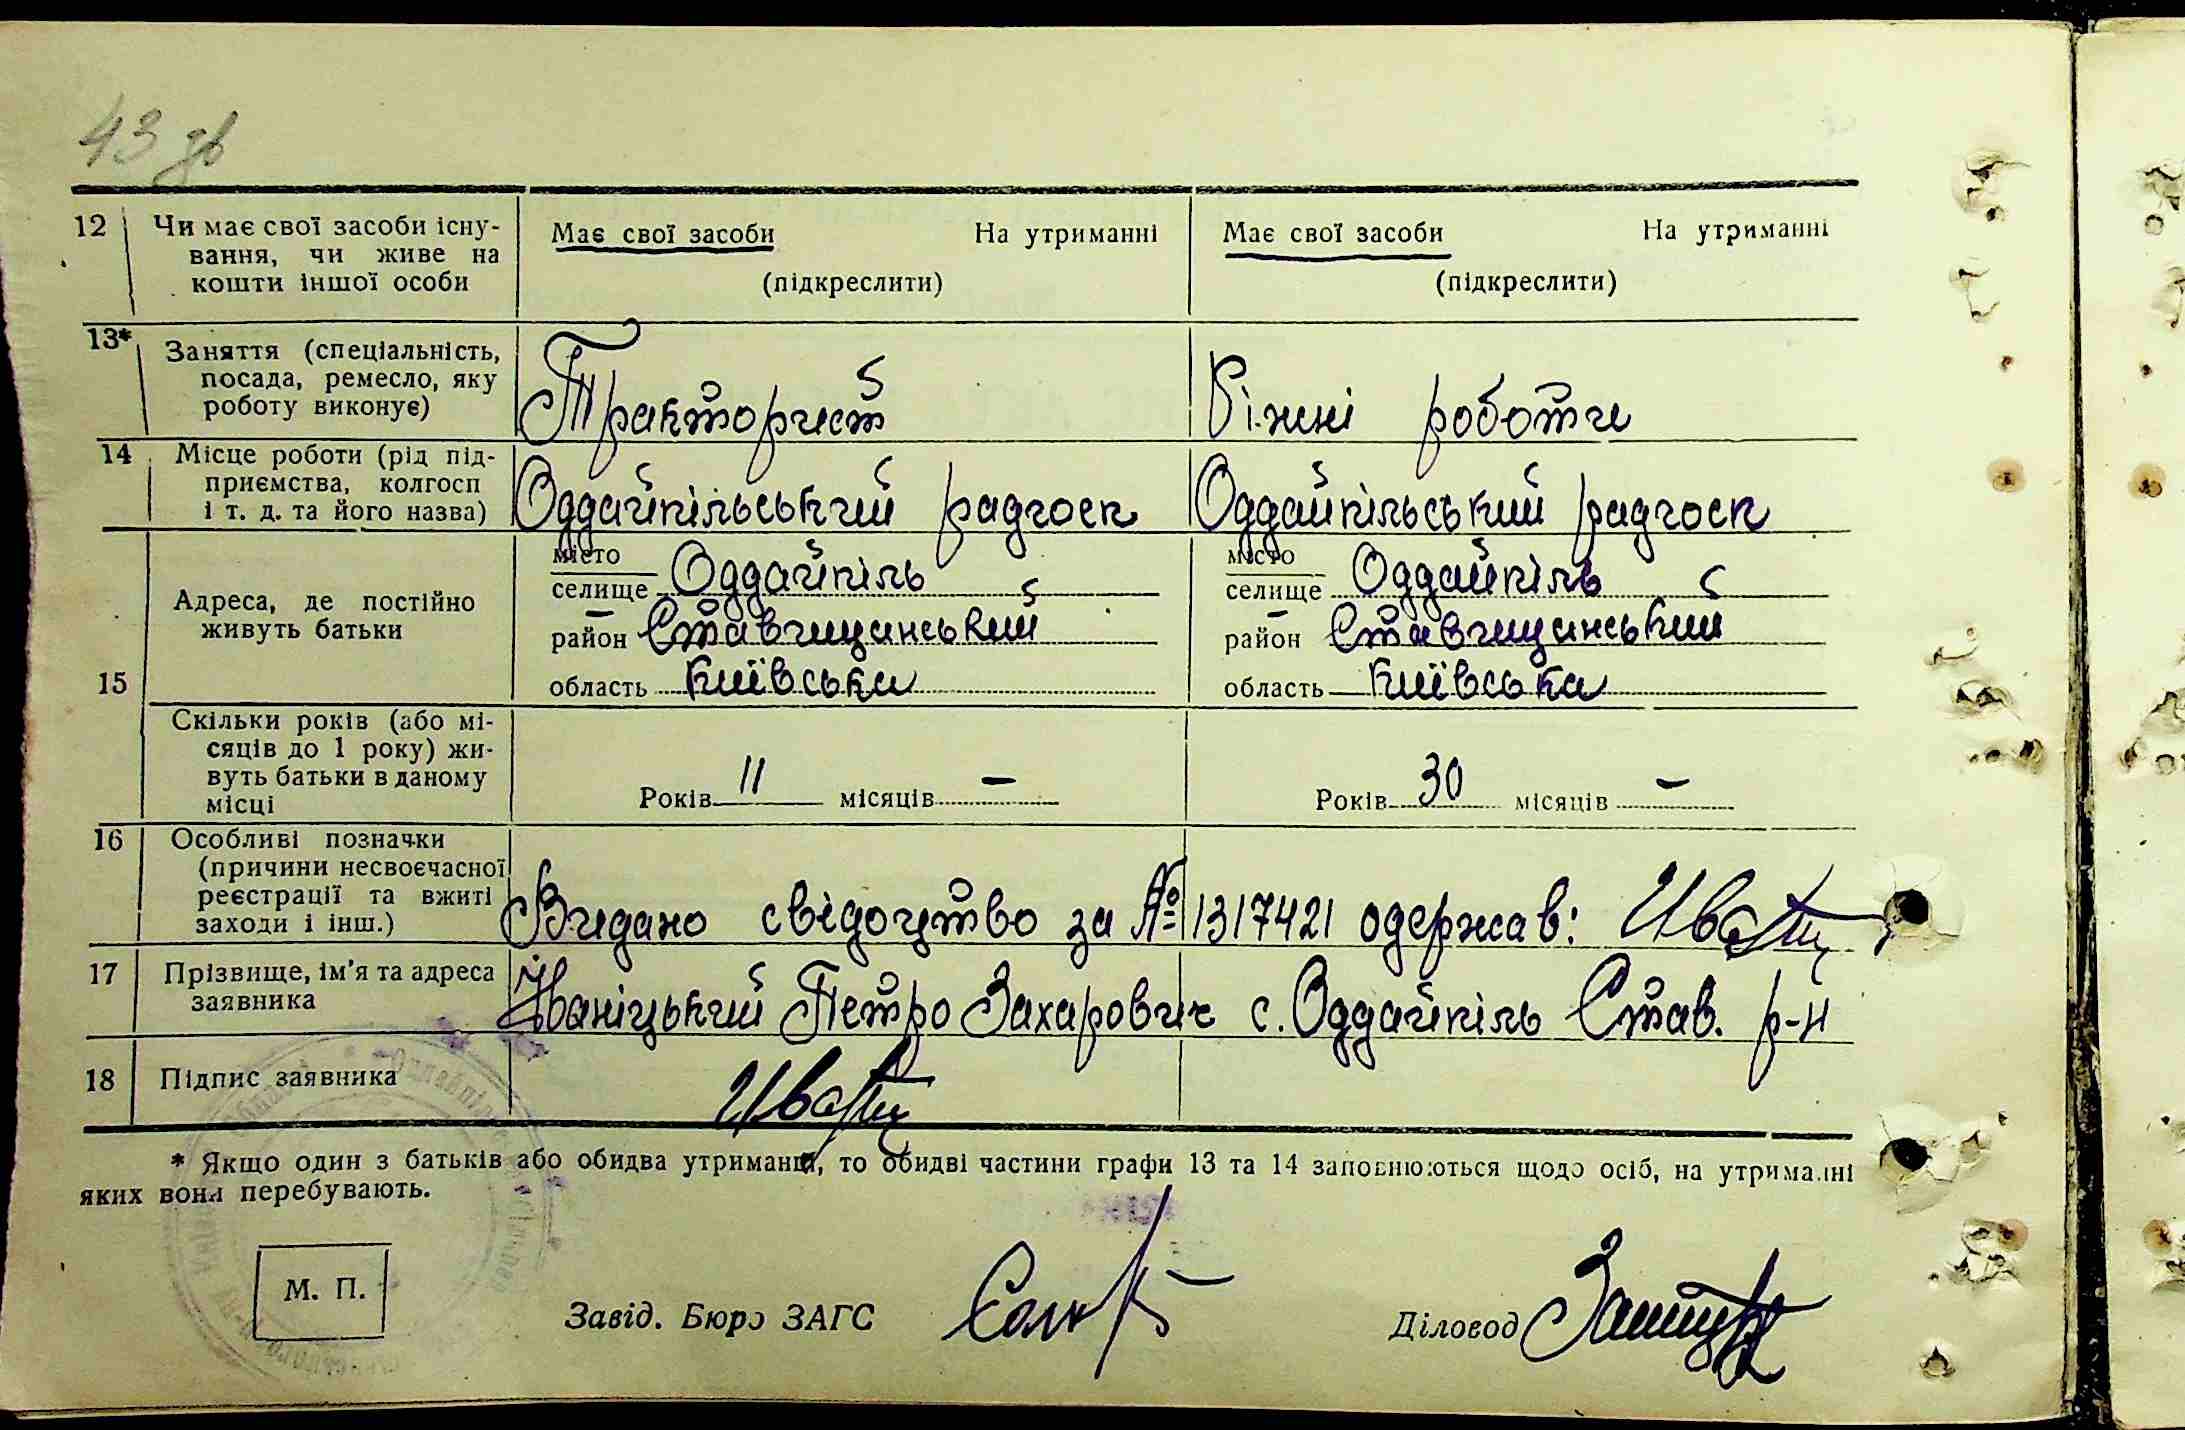 43 зв
12 Чи має свої засоби існу- Має свої засоби На утриманні Має свої засоби На утриманні
вання, чи живе на
кошти іншої особи (підкреслити) (підкреслити)
13* Заняття (спеціальність,
посада, ремесло, яку
роботу виконує) Тракторист Різнні роботи
14 Місце роботи (рід під-
приємства, колгосп
і т. д. та його назва) Оддайпільський радгосп Оддайпільський радгосп
15 Адреса, де постійно
живуть батьки
місто
селище Оддайпіль
район Ставищанський
область Київська
місто
селище Оддайпіль
район Ставищанський
область Київська
Скільки років (або мі-
сяців до 1 року) жи-
вуть батьки в даному
місці
Років 11 місяців – Років 30 місяців –
16 Особливі позначки
(причини несвоєчасної
реєстрації та вжиті
заходи і інш.) Видано свідоцтво за № 1317421 одержав:
17 Прізвище, ім'я та адреса
заявника Іваніцький Петро Захарович с. Оддайпіль Став. р-н
18 Підпис заявника
* Якщо один з батьків або обидва утриманці, то обидві частини графи 13 та 14 заповнюються щодо осіб, на утриманні
яких вони перебувають.
М. П. Завід. Бюро ЗАГС Діловод